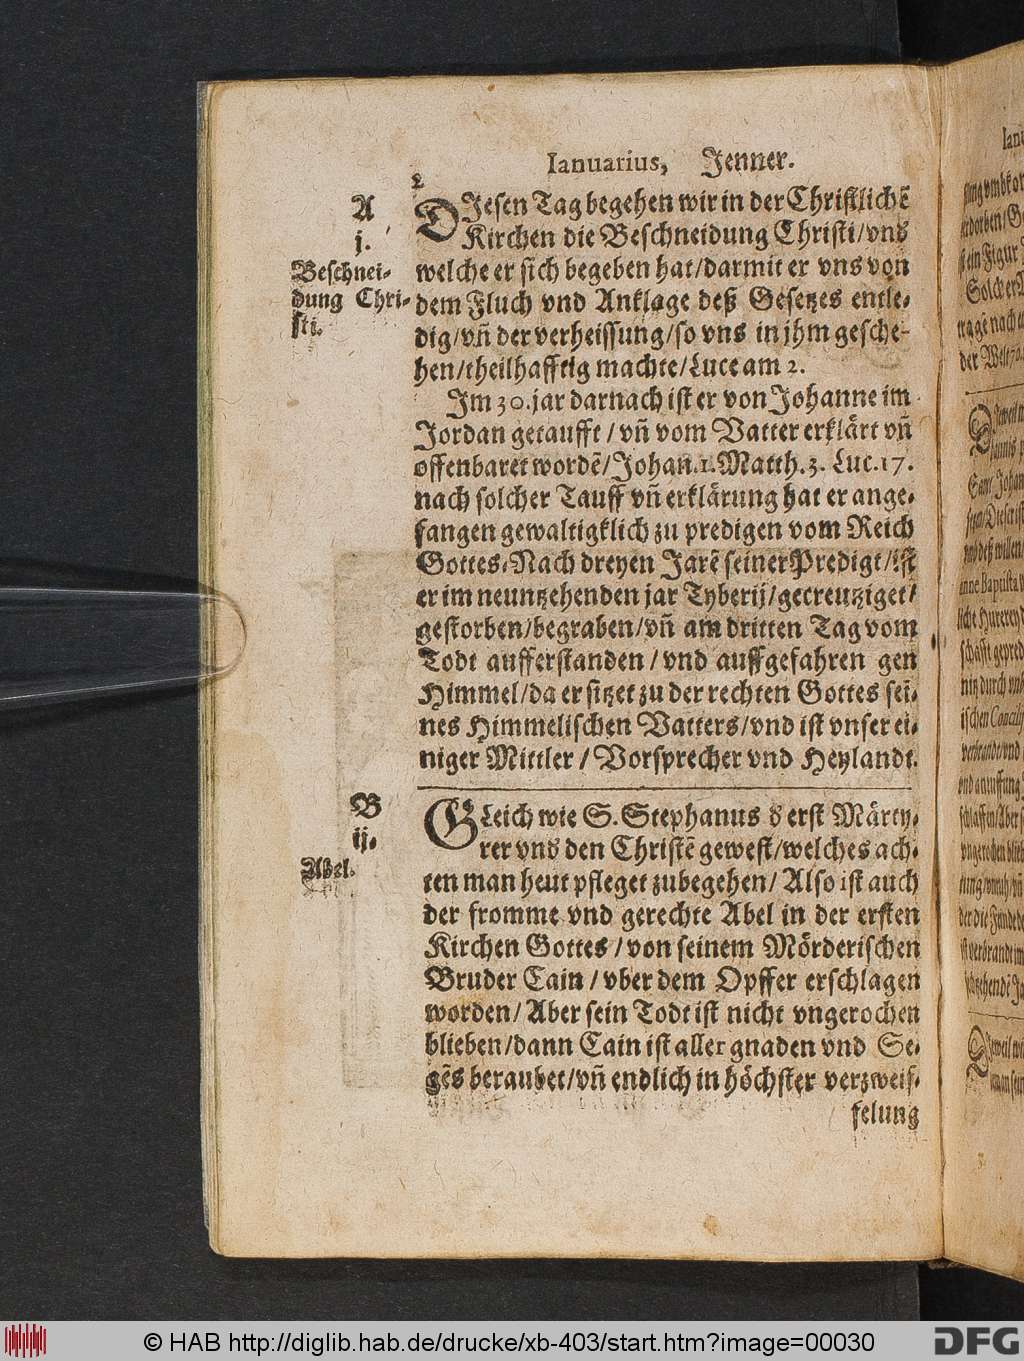 Ianuarius, Jenner.
2
A
j.
Beschnei-
dung Chri-
sti.
DIesen Tag begehen wir in der Christlichẽ
Kirchen die Beschneidung Christi/vns
welche er sich begeben hat/darmit er vns von
dem Fluch vnd Anklage deß Gesetzes entle-
dig/vñ der verheissung/so vns in jhm gesche-
hen/theilhafftig machte/Luce am 2.
Im 30. jar darnach ist er von Johanne im
Jordan getaufft/vñ vom Vatter erklärt vñ
offenbaret wordẽ/Johan.1.Matth.3.Luc.17.
nach solcher Tauff vñ erklärung hat er ange-
fangen gewaltigklich zu predigen vom Reich
Gottes.Nach dreyen Jarẽ seiner Predigt/ist
er im neuntzehenden jar Tyberij/gecreutziget/
gestorben/begraben/vñ am dritten Tag vom
Todt aufferstanden/vnd auffgefahren gen
Himmel/da er sitzet zu der rechten Gottes sei-
nes Himmelischen Vatters/vnd ist vnser ei-
niger Mittler/Vorsprecher vnd Heylandt.
B
ij.
Abel.
GLeich wie S. Stephanus d erst Märty-
rer vnd den Christẽ gewest/welches ach-
ten man heut pfleget zubegehen/Also ist auch
der fromme vnd gerechte Abel in der ersten
Kirchen Gottes/von seinem Mörderischen
Bruder Cain/vber dem Opffer erschlagen
worden/Aber sein Todt ist nicht vngerochen
blieben/dann Cain ist aller gnaden vnd Se-
gẽs beraubet/vñ endlich in höchster verzweif-
felung
© HAB http://diglib.hab.de/drucke/xb-403/start.htm?image=00030
DFG